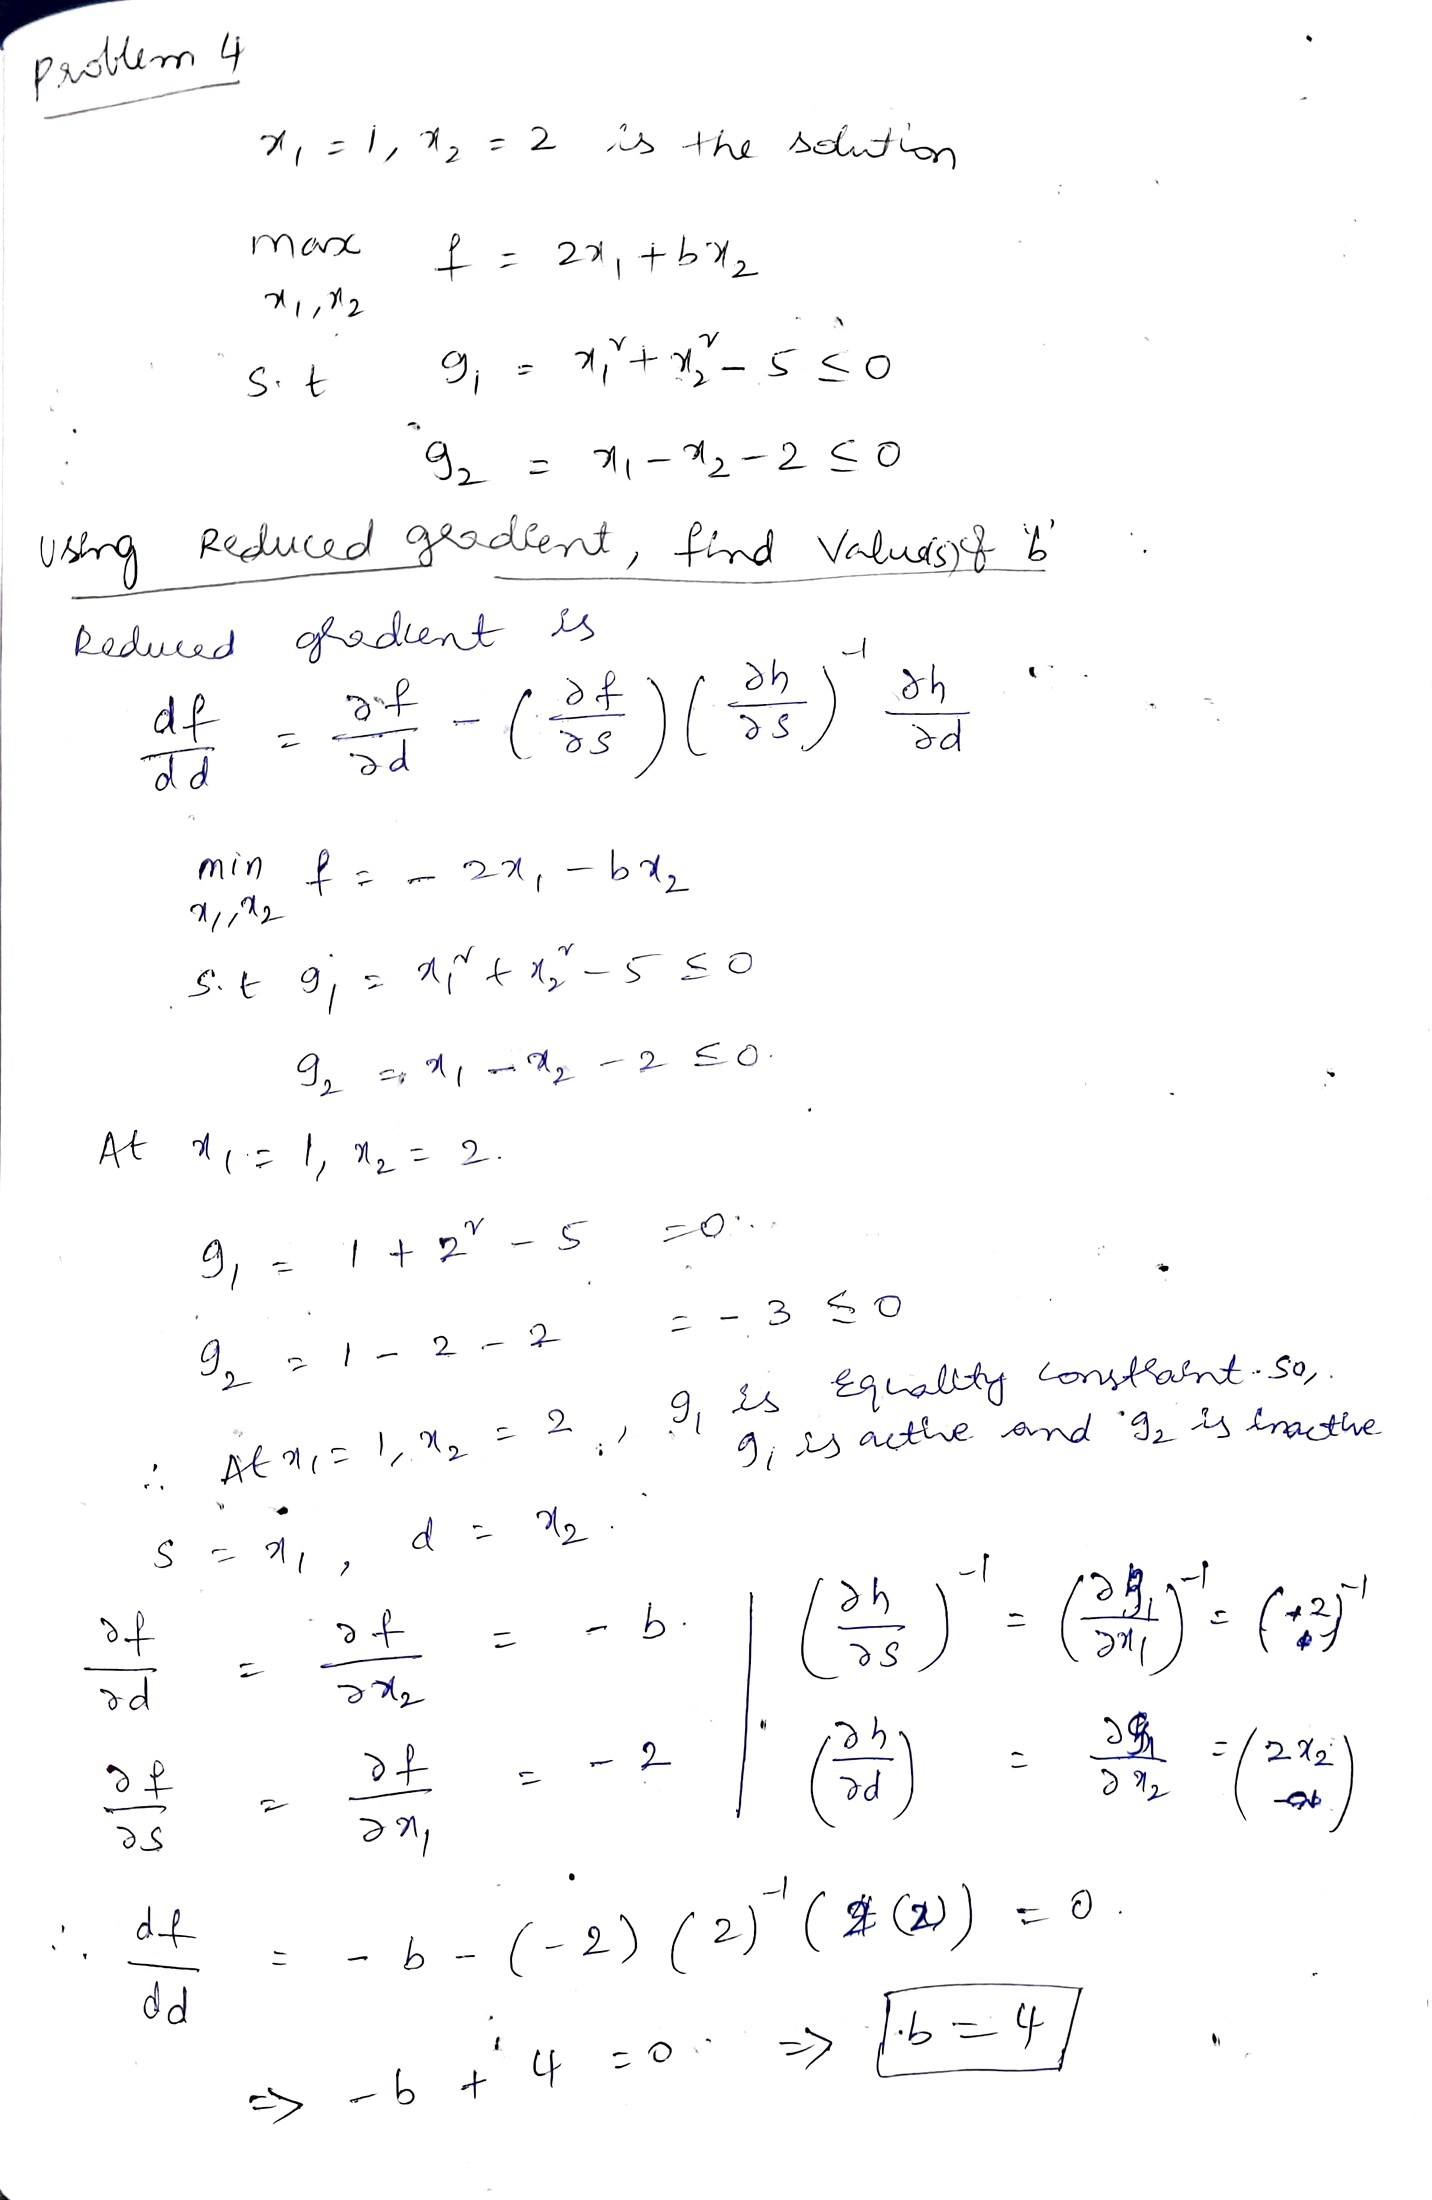 Problem 4
x₁ = 1, x₂ = 2 is the solution
max f = 2x₁ + bx₂
x₁, x₂
S.t g₁ = x₁² + x₂² - 5 ≤ 0
g₂ = x₁ - x₂ - 2 ≤ 0
Using Reduced gradient, find Value(s) of 'b'
Reduced gradient is
df/dd = ∂f/∂d - (∂f/∂s)(∂h/∂s)⁻¹ ∂h/∂d
min f = - 2x₁ - bx₂
x₁, x₂
S.t g₁ = x₁² + x₂² - 5 ≤ 0
g₂ = x₁ - x₂ - 2 ≤ 0.
At x₁ = 1, x₂ = 2.
g₁ = 1 + 2² - 5 = 0
g₂ = 1 - 2 - 2 = - 3 ≤ 0
∴ At x₁ = 1, x₂ = 2, g₁ is Equality constraint. So,
g₁ is active and g₂ is inactive
s = x₁, d = x₂.
∂f/∂d = ∂f/∂x₂ = - b. | (∂h/∂s)⁻¹ = (∂g₁/∂x₁)⁻¹ = (+2)⁻¹
∂f/∂s = ∂f/∂x₁ = - 2 | (∂h/∂d) = ∂g₁/∂x₂ = (2x₂)
∴ df/dd = - b - (-2) (2)⁻¹ (2(2)) = 0.
⇒ - b + 4 = 0 ⇒ b = 4